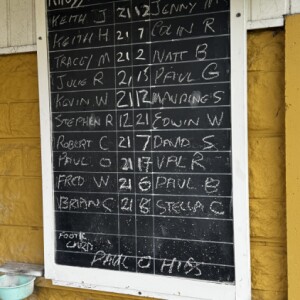 KEITH J 21 12 JENNY M
KEITH H 21 7 COLIN R
TRACEY M 21 2 NATT B
JULIE R 21 15 PAUL G
KEVIN W 21 12 S
STEPHEN R 12 21 EDWIN W
ROBERT C 21 7 DAVID S
PAUL O 21 17 VAL R
FRED W 21 6 PAUL B
BRIAN C 21 8 STELLA C
FOOTE
CARD
PAUL O HIBS